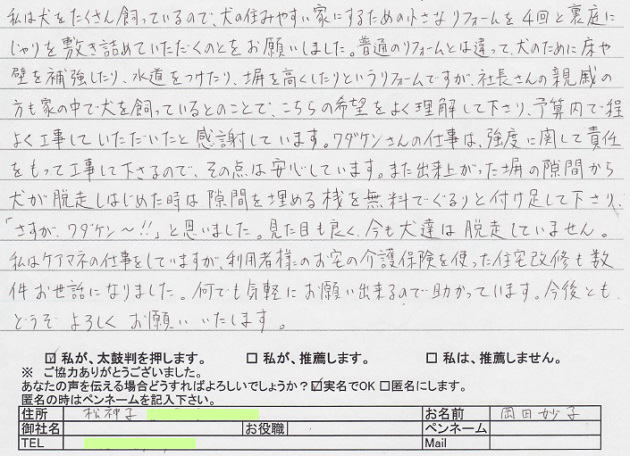 私は犬をたくさん飼っているので、犬の住みやすい家にするための小さなリフォームを4回と裏庭に
じゃりを敷き詰めていただくのとをお願いしました。普通のリフォームとは違って、犬のために床や
壁を補強したり、水道をつけたり、塀を高くしたりというリフォームですが、社長さんの親戚の
方も家の中で犬を飼っているとのことで、こちらの希望をよく理解して下さり、予算内で程
よく工事していただいたと感謝しています。ワダケンさんの仕事は、強度に関して責任
をもって工事して下さるので、その点は安心しています。また出来上がった塀の隙間から
犬が脱走しはじめた時は隙間を埋める桟を無料でぐるりと付け足して下さり、
「さすが、ワダケン〜!!」と思いました。見た目も良く、今も犬達は脱走していません。
私はケアマネの仕事をしていますが、利用者様のお宅の介護保険を使った住宅改修も数
件お世話になりました。何でも気軽にお願い出来るので助かっています。今後とも、
どうぞよろしくお願いいたします。
☑ 私が、太鼓判を押します。 □ 私が、推薦します。 □ 私は、推薦しません。
※ ご協力ありがとうございました。
あなたの声を伝える場合どうすればよろしいでしょうか?☑実名でOK □匿名にします。
匿名の時はペンネームを記入下さい。
住所 松神子 お名前 岡田妙子
御社名 お役職 ペンネーム
TEL Mail